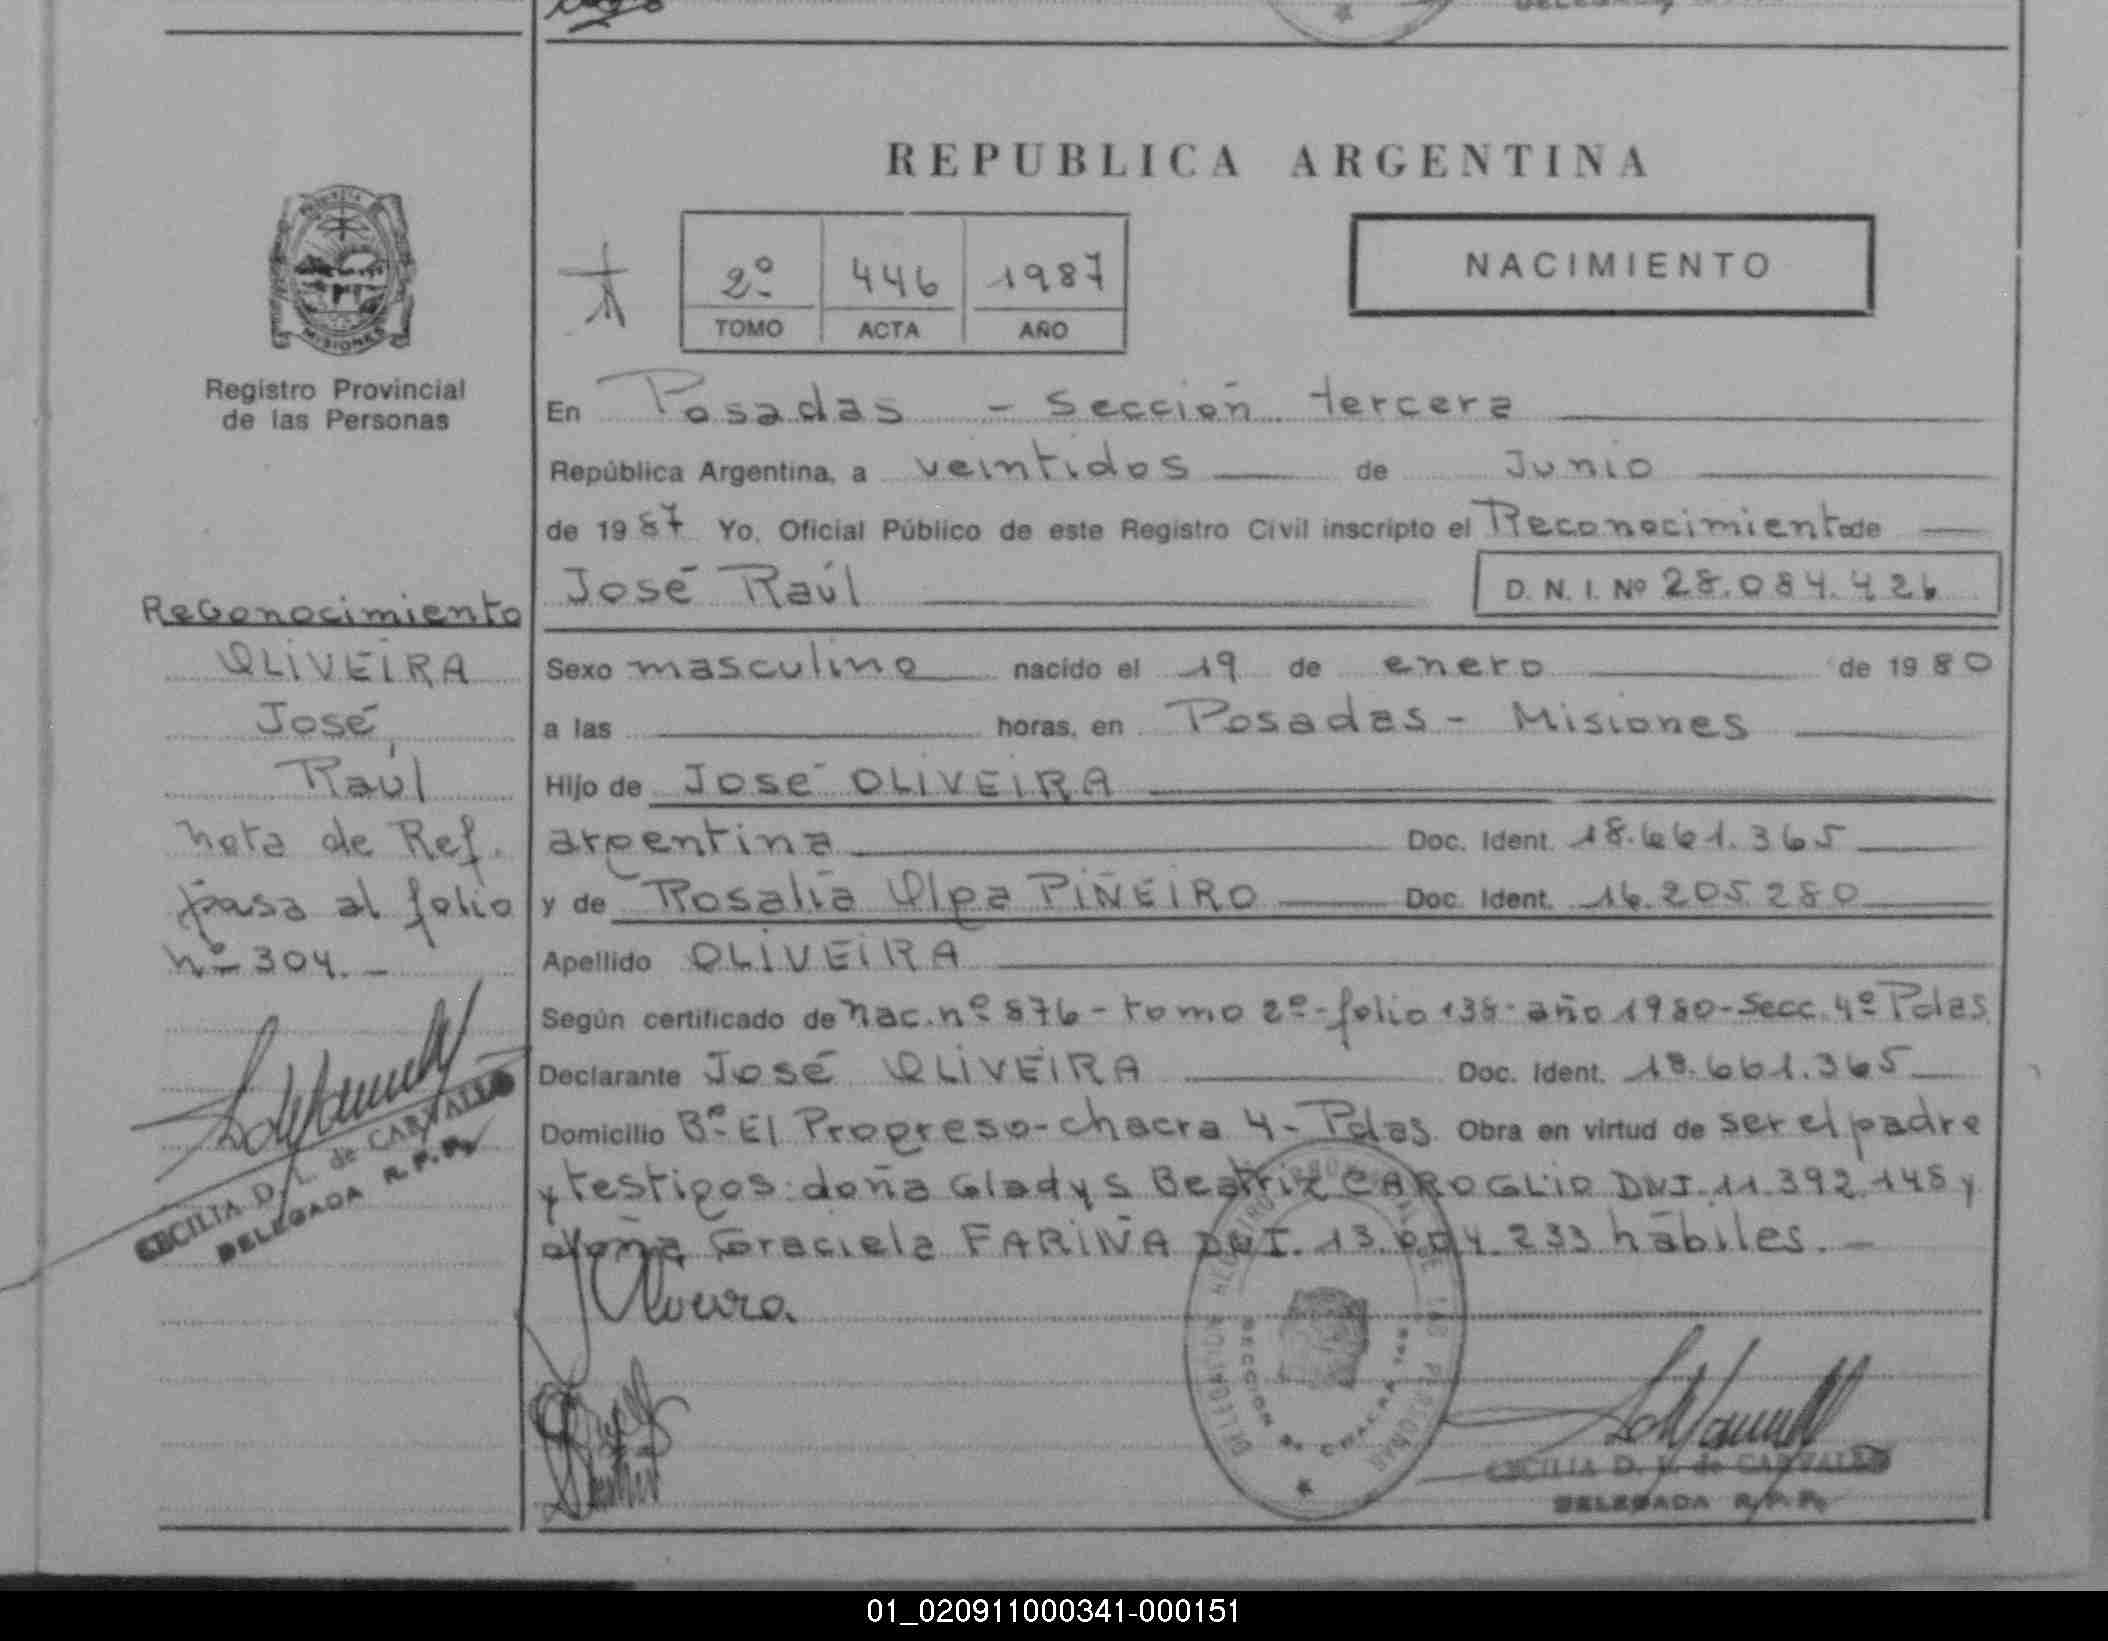 REPUBLICA ARGENTINA
MISIONES
Registro Provincial
de las Personas
2º 446 1987
TOMO ACTA AÑO
NACIMIENTO
En Posadas - Sección tercera
República Argentina, a veintidos de Junio
de 1987 Yo, Oficial Público de este Registro Civil inscripto el Reconocimiento de
José Raúl D. N. I. Nº 28.084.426
Sexo masculino nacido el 19 de enero de 1980
a las horas, en Posadas - Misiones
Hijo de José OLIVEIRA
argentina Doc. Ident. 18.661.365
y de Rosalia Olga PIÑEIRO Doc. Ident. 16.205.280
Apellido OLIVEIRA
Según certificado de nac. nº 876 - tomo 2º - folio 138 - año 1980 - Secc. 4º Pdas
Declarante José OLIVEIRA Doc. Ident. 18.661.365
Domicilio Bº El Progreso - chacra 4 - Pdas. Obra en virtud de ser el padre
y testigos: doña Gladys Beatriz CAROGLIO DNI. 11.392.148 y
doña Graciela FARIÑA DNI. 13.004.233 hábiles. -
Oliveira
Reconocimiento
OLIVEIRA
José,
Raúl
nota de Ref.
pasa al folio
nº 304. -
CECILIA D. L. de CARVALLO
DELEGADA R.P.P.
CECILIA D. L. de CARVALLO
DELEGADA R.P.P.
01_020911000341-000151